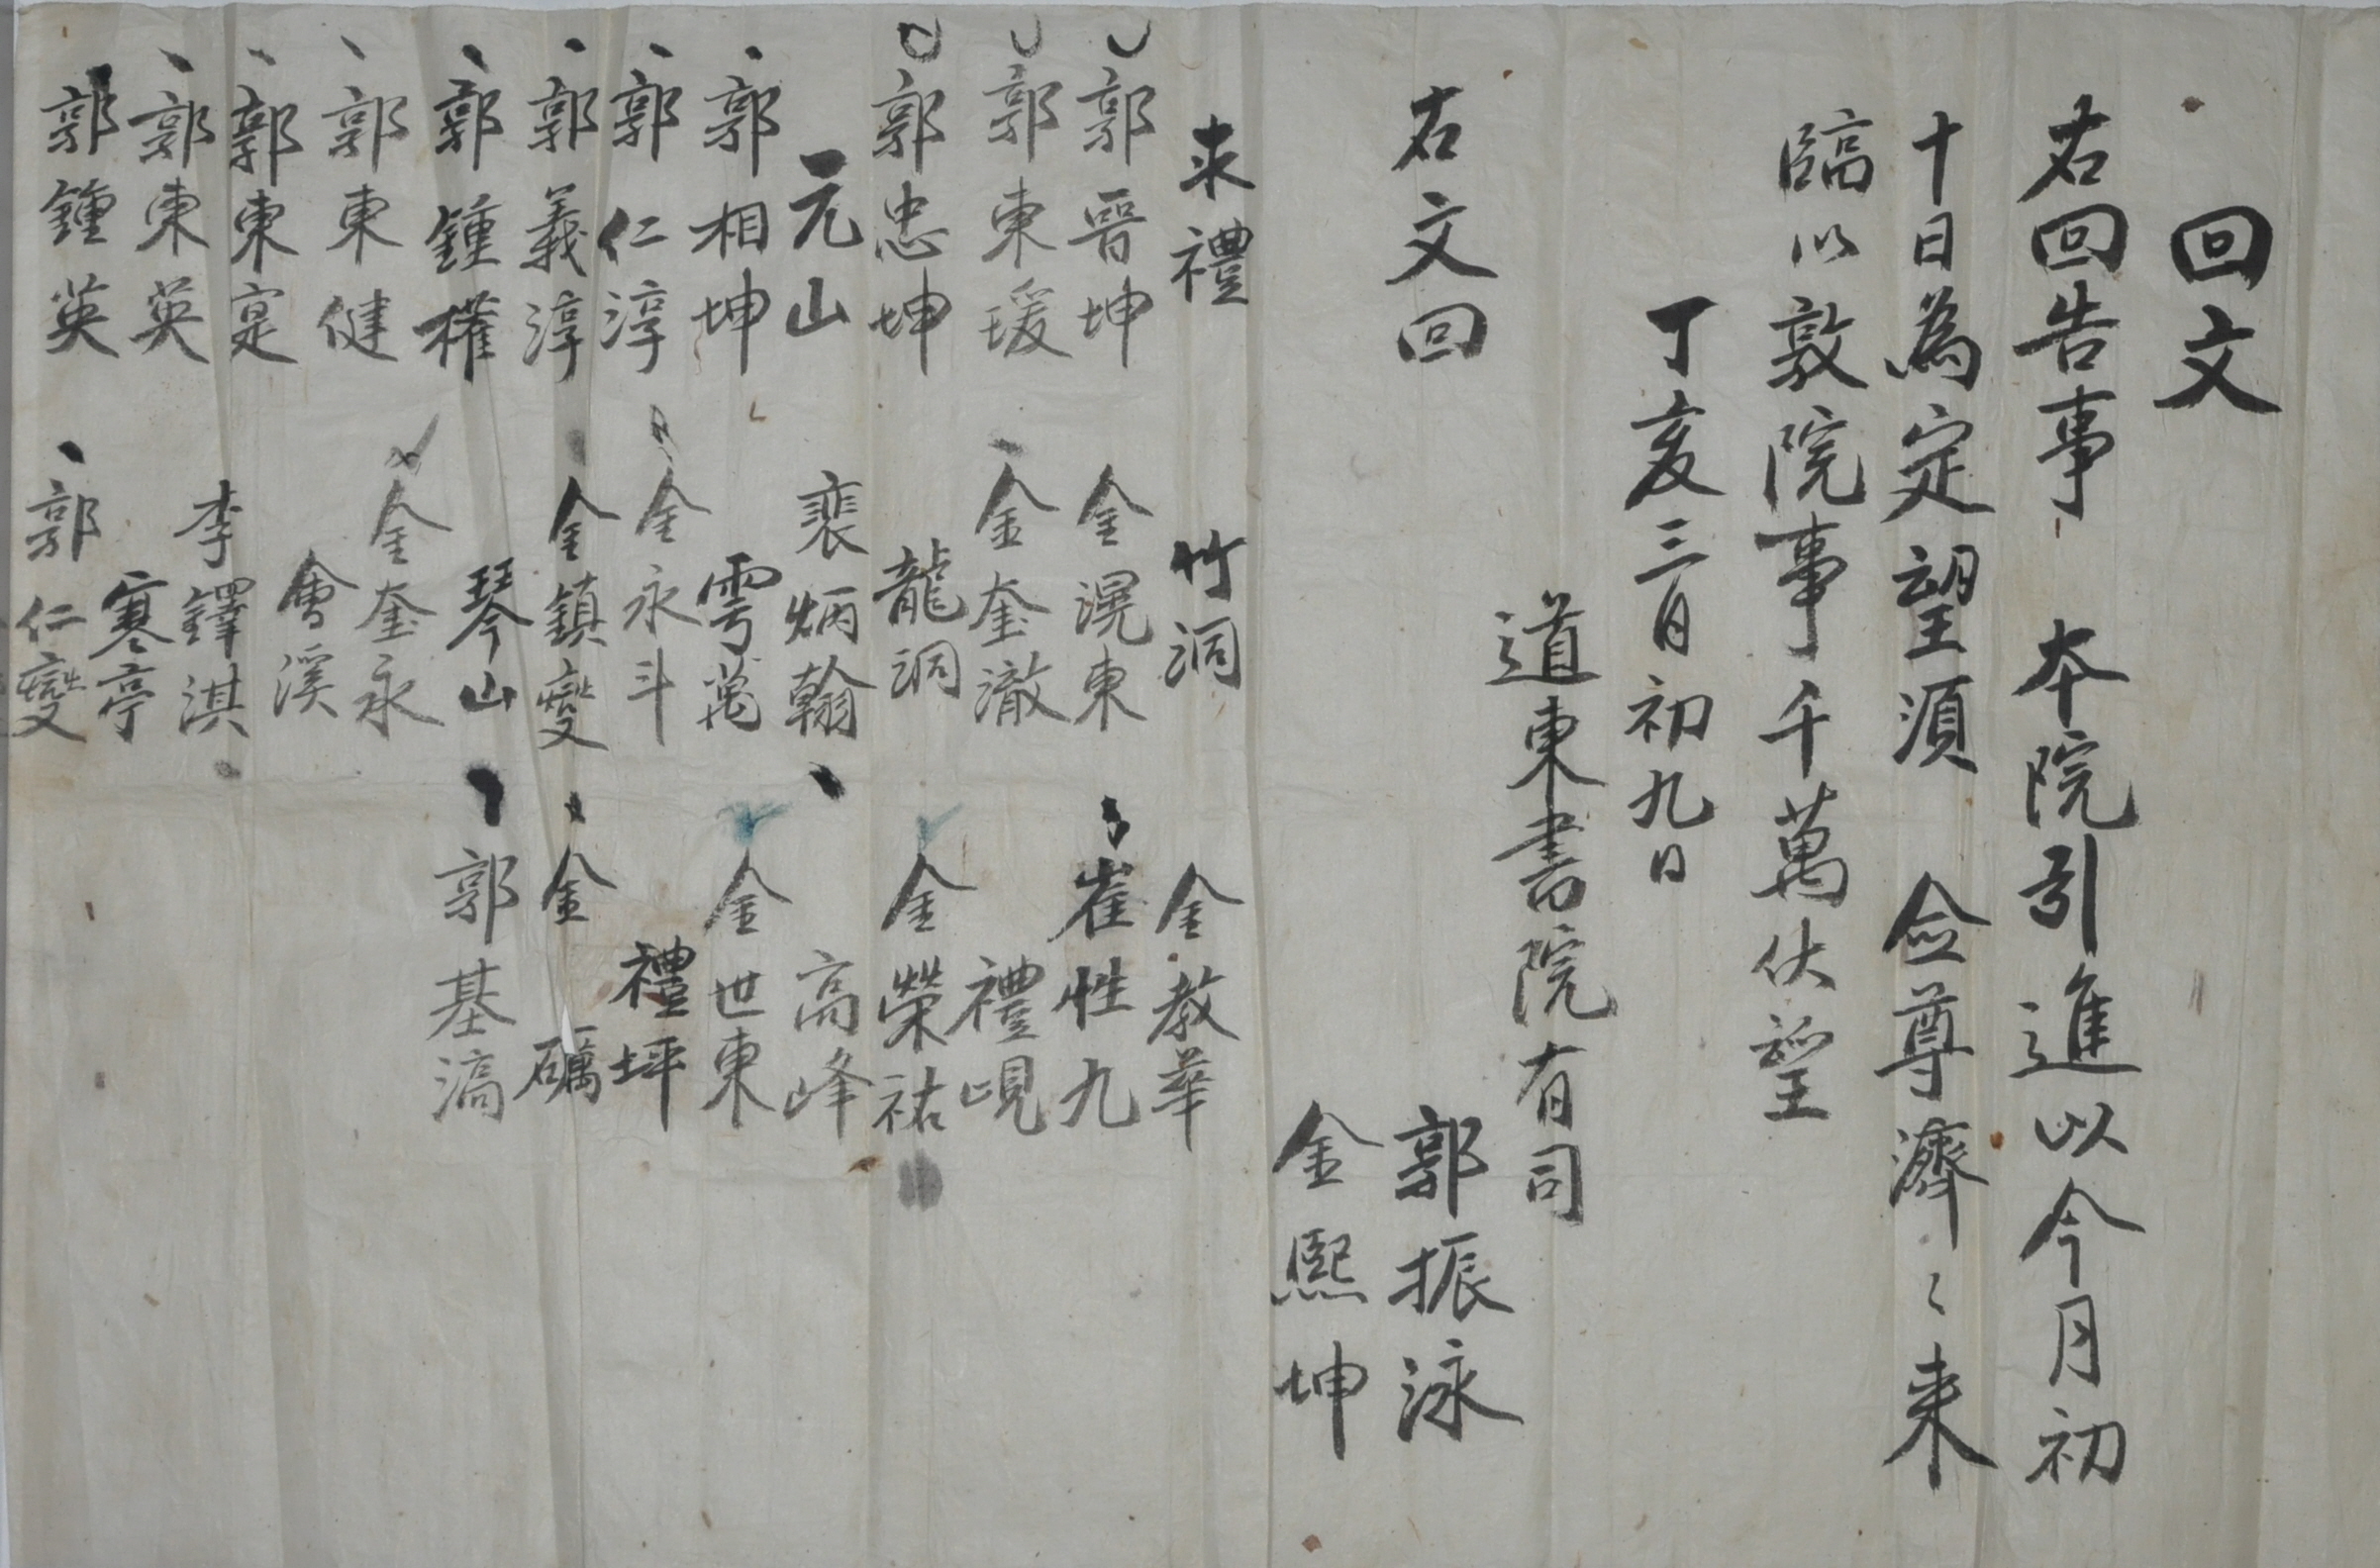 回文
右回告事 本院引進以今月初
十日為定望須 僉尊濟〻来
臨以敦院事千萬伏望
丁亥三月初九日
道東書院有司
郭振泳
金熙坤
右文回
来禮
郭晋坤
郭東瑗
郭忠坤
元山
郭相坤
郭仁淳
郭義淳
郭鍾權
郭東健
郭東寔
郭東英
郭鍾英
竹洞
金滉東
金奎澈
龍洞
裵炳翰
雩萬
金永斗
金鎮燮
琴山
金奎永
會溪
李鐸淇
寒亭
郭仁燮
金教華
崔性九
禮峴
金榮祐
高峰
金世東
禮坪
金礪
郭基滈